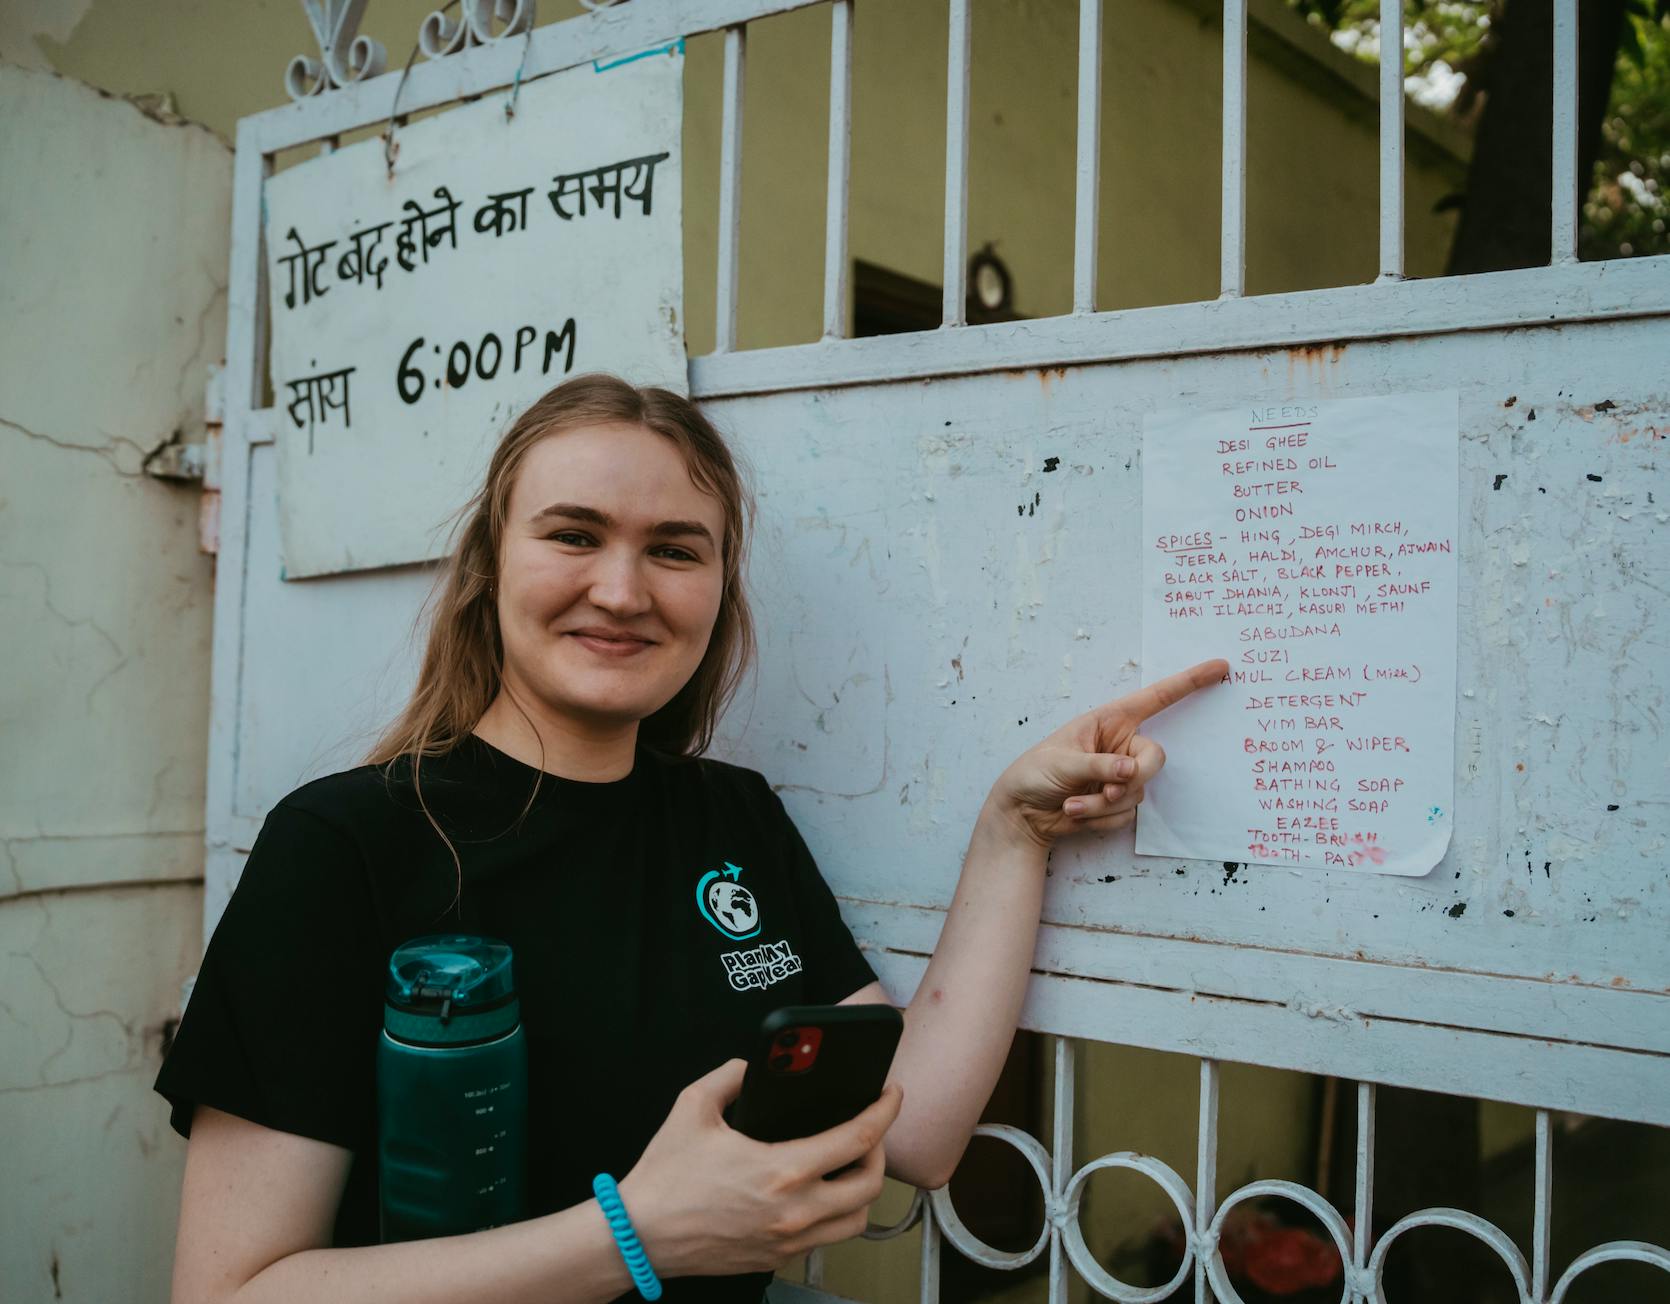 गेट बंद होने का समय
सांय 6:00 PM
NEEDS
DESI GHEE
REFINED OIL
BUTTER
ONION
SPICES - HING, DEGI MIRCH,
JEERA, HALDI, AMCHUR, AJWAIN
BLACK SALT, BLACK PEPPER,
SABUT DHANIA, KLONJI, SAUNF
HARI ILAICHI, KASURI METHI
SABUDANA
SUZI
AMUL CREAM (Milk)
DETERGENT
VIM BAR
BROOM & WIPER
SHAMPOO
BATHING SOAP
WASHING SOAP
EAZEE
TOOTH-BRUSH
TOOTH-PAS
Plan My
Gap Year